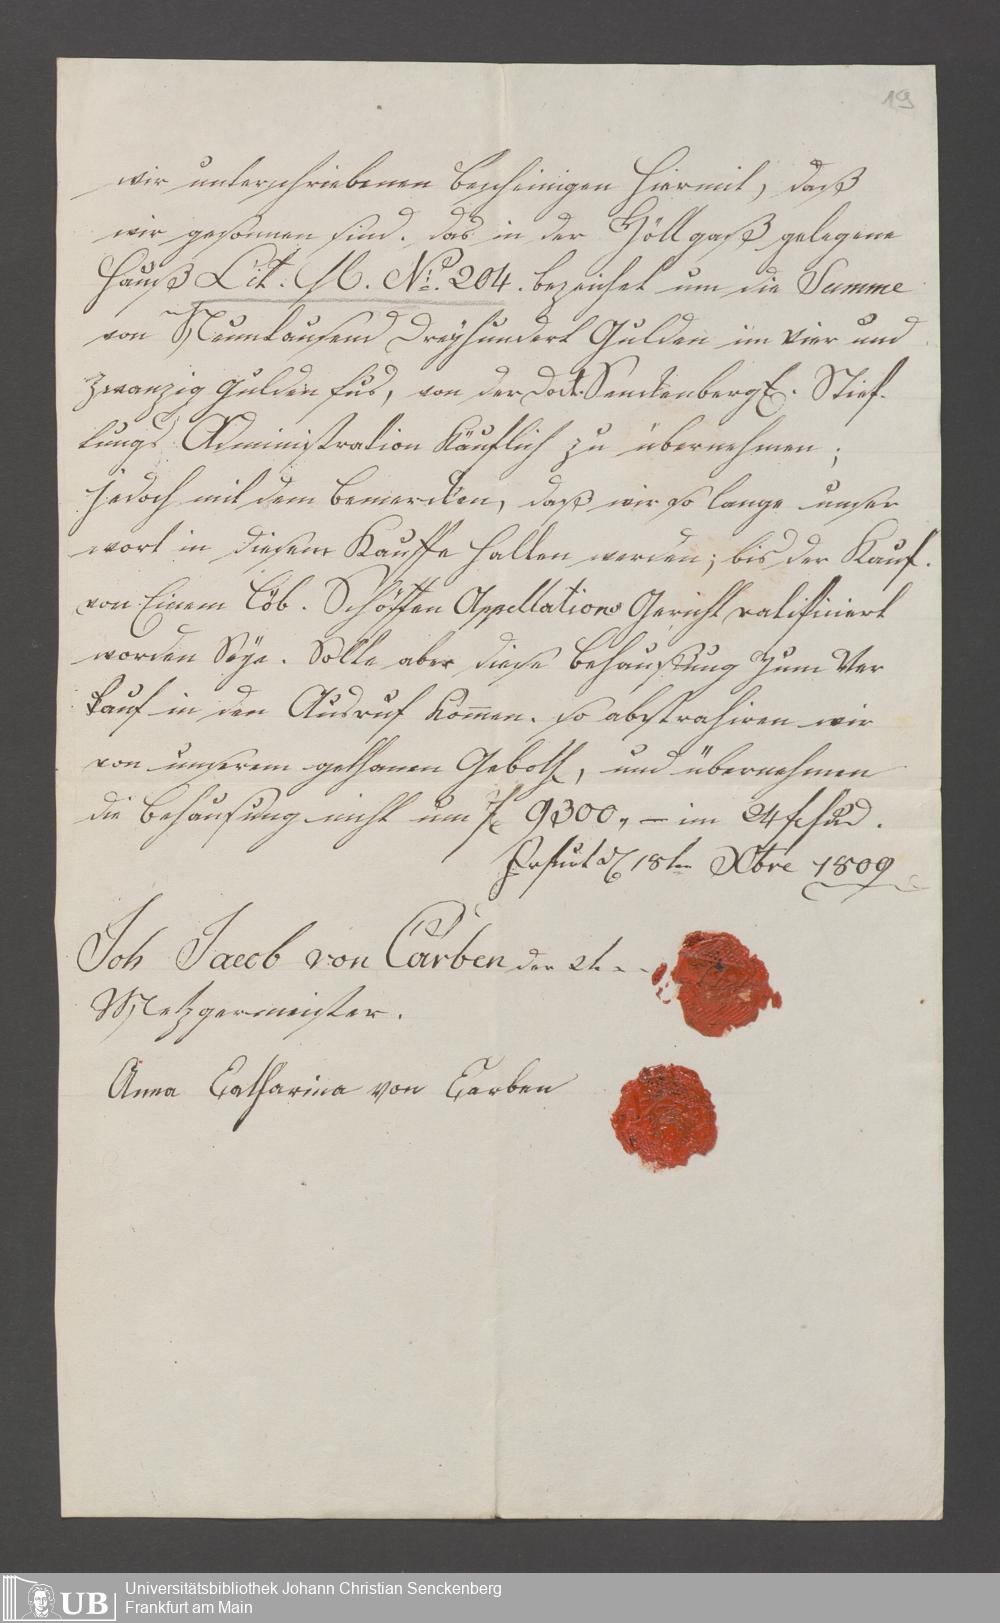 19
wir unterschriebenen bescheinigen hiermit, daß
wir gesonnen sind. das in der Höllgaß gelegene
Hauß Lit. M. No. 204. bezeichet um die Summe
von Neuntausend Dreyhundert Gulden im vier und
zwanzig Gulden fus, von der Doct. Senckenberg. Stief-
tungs Administration Käuflich zu übernehmen;
jedoch mit dem bemercken, daß wir so lange unser
wort in diesem Kauffe halten werden; bis der Kauf.
von Einem Löb. Schöffen Appellations Gericht ratificiert
worden Seye. Solte aber diese behaussung zum Ver
kauf in den Ausruf kommen. so abstrahiren wir
von unserem gethanen Geboth, und übernehmen
die behausung nicht um f 9300,, — im 24 f fus.
Frfurt d 18ten Xbre 1809
Joh Jacob von Carben der
Metzgermeister.
Anna Catharina von Carben
UB
Universitätsbibliothek Johann Christian Senckenberg
Frankfurt am Main